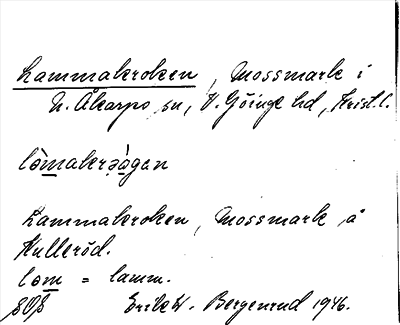 Lammakroken, Mossmark i
N. Åkarps sn, V. Göinge hd, Krist. l.
lòmakrəògen
Lammakroken, Mossmark å
Hulleröd.
lom = lamm.
Erik W. Bergenrud 1946.